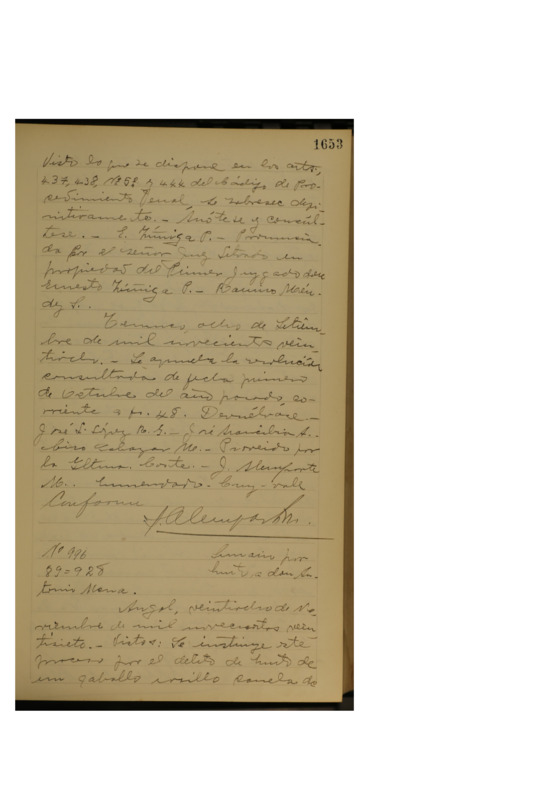 1653
Visto lo que se dispone en los arts,
437, 438, Nº 5º y 444 del Código de Pro-
cedimiento Penal, se sobresee defi-
nitivamente.- Anótese y consúl-
tese.- E. Zúñiga P.- Pronuncia-
da por el señor Juez Letrado en
propiedad del Primer Juzgado don
Ernesto Zúñiga P.- Ramiro Mén-
dez S.
Temuco, ocho de Setiem-
bre de mil novecientos vein-
tiocho.- Se aprueba la resolución
consultada de fecha primero
de Octubre del año pasado, co-
rriente a fs. 48. Devuélvase.-
José
Salazar M.- Proveído por
la Iltma. Corte.- J. Alemparte
M.. Enmendado:
Conforme
J. Alemparte M.
Nº 996
39=928
Sumario por
hurto don An-
tonio Mena.
Angol, veintiocho de No-
viembre de mil novecientos vein-
tisiete.- Vistos: Se instruye este
proceso por el delito de hurto de
un caballo rosillo canela de